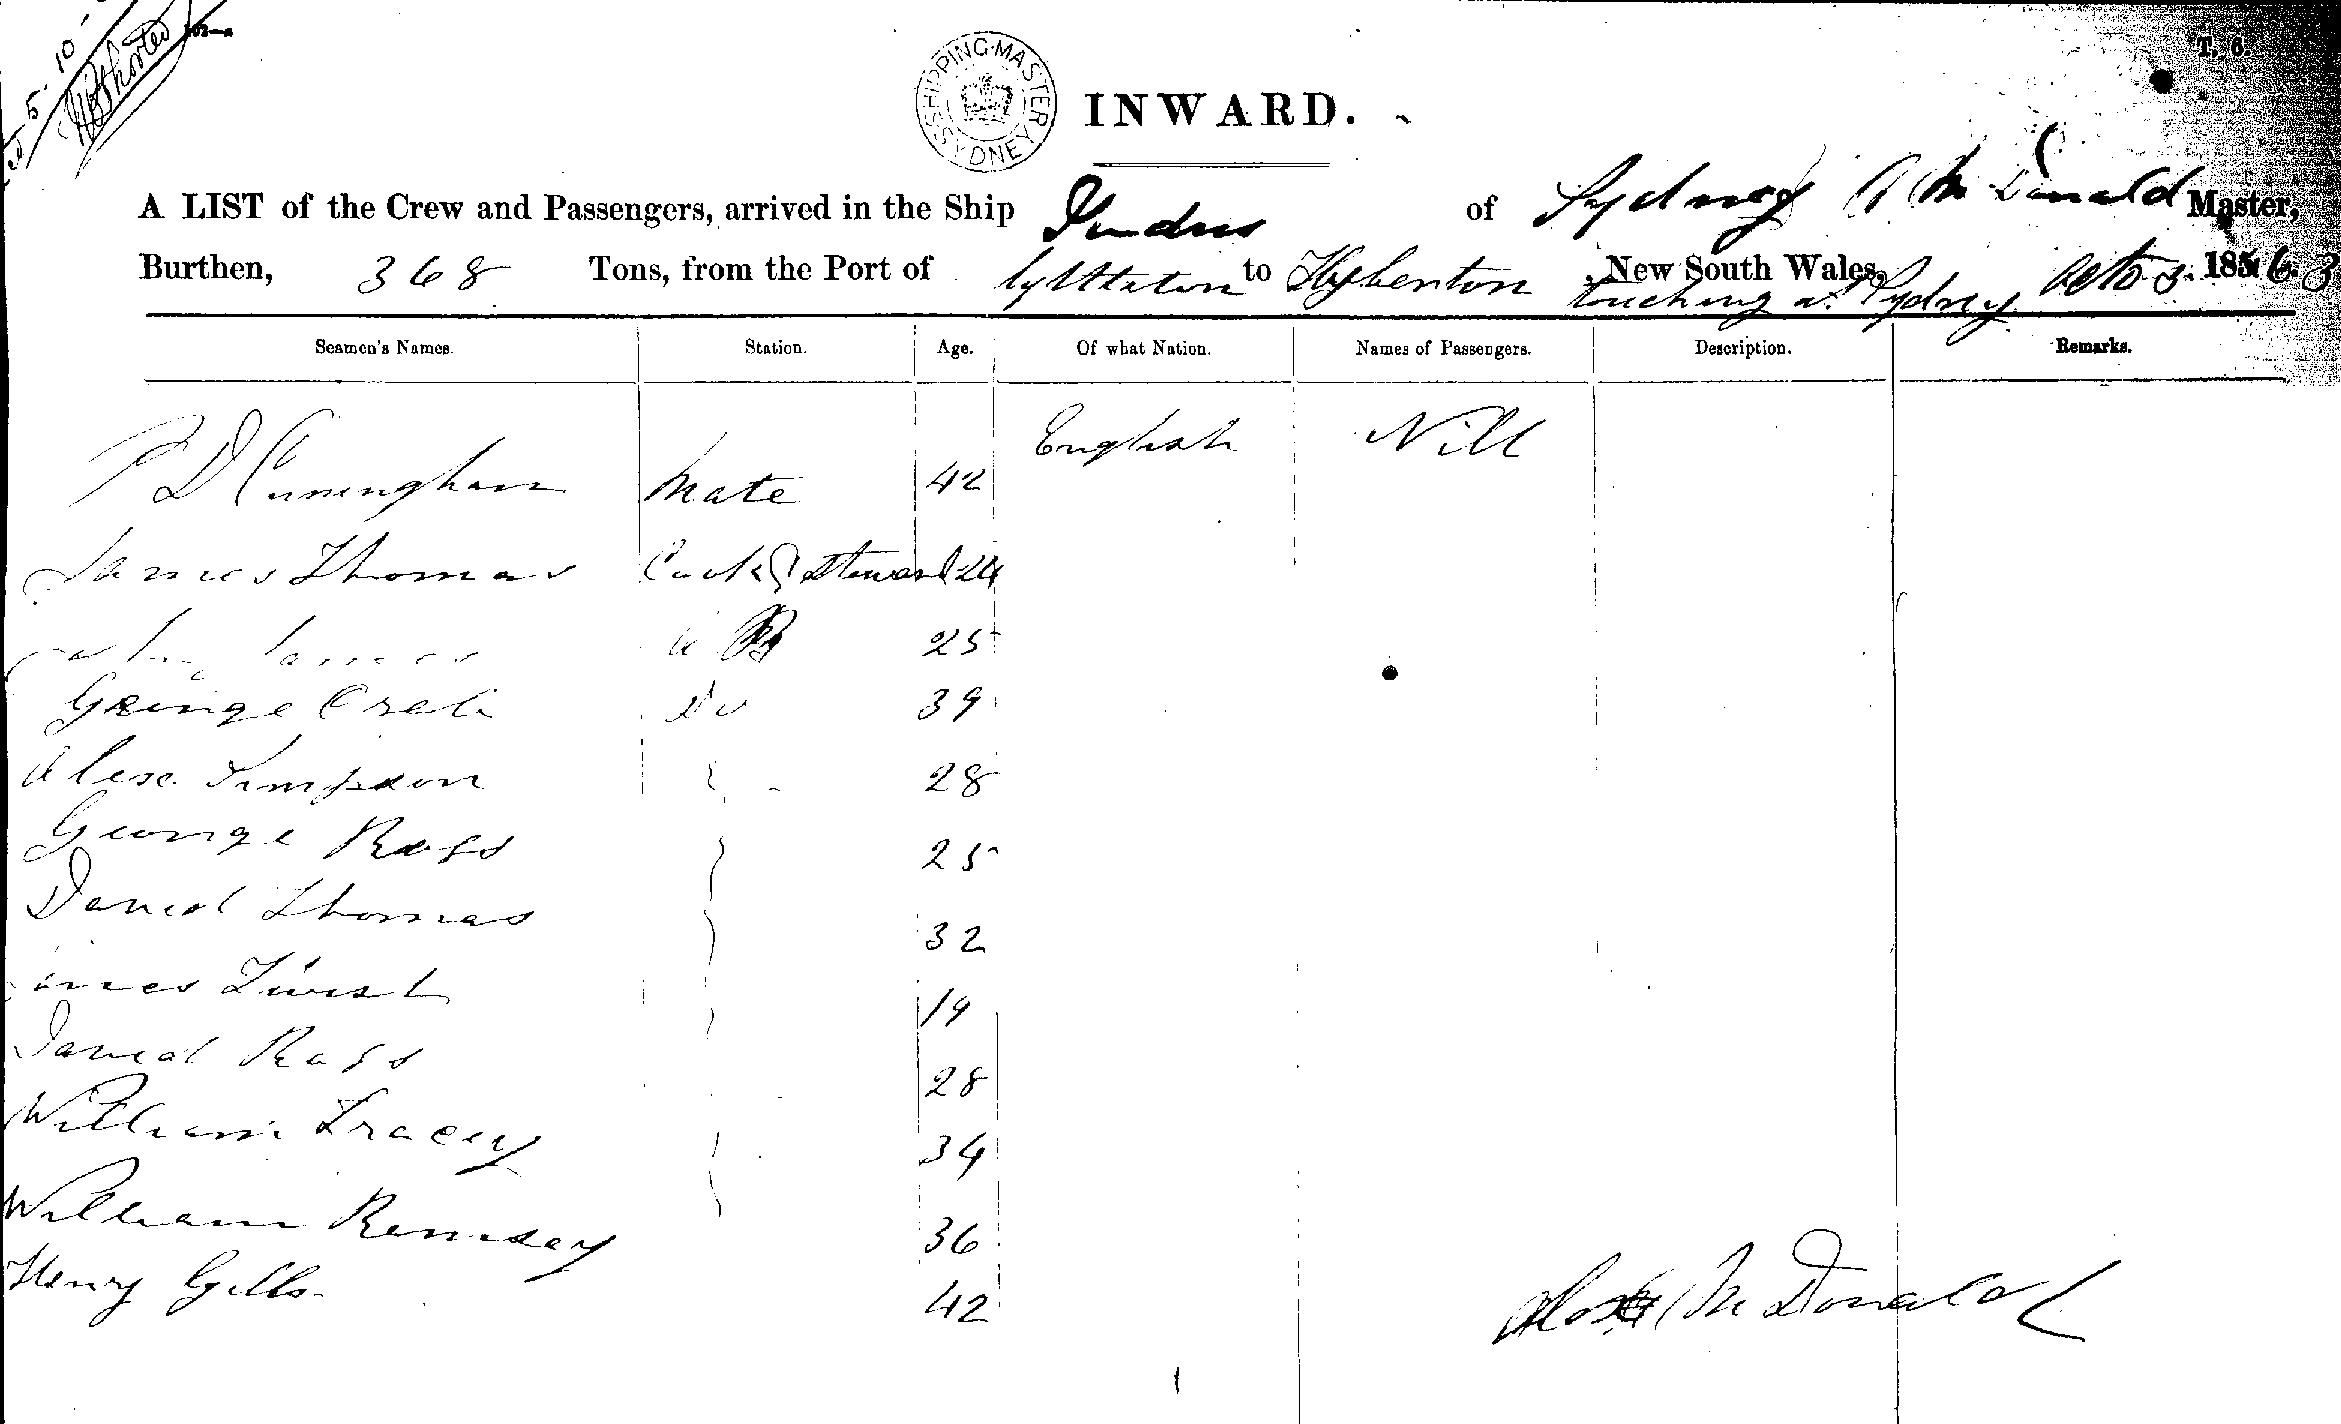 T. 6.
5. 10
SHIPPING MASTER SYDNEY
INWARD.
A LIST of the Crew and Passengers, arrived in the Ship Indus of Sydney A McDonald Master,
Burthen, 368 Tons, from the Port of Lyttleton to New South Wales, Octo 3. 1863
touching at Sydney
Seamen's Names. Station. Age. Of what Nation. Names of Passengers. Description. Remarks.
D Cuningham Mate 42 English Nill
James Thomas Cook & Steward 24
James A B 25
George Do 39
Alex Simpson 28
George Ross 25
David Thomas 32
James Twist 19
David Ross 28
William Tracey 34
William Remsay 36
Henry Gills 42
McDonald